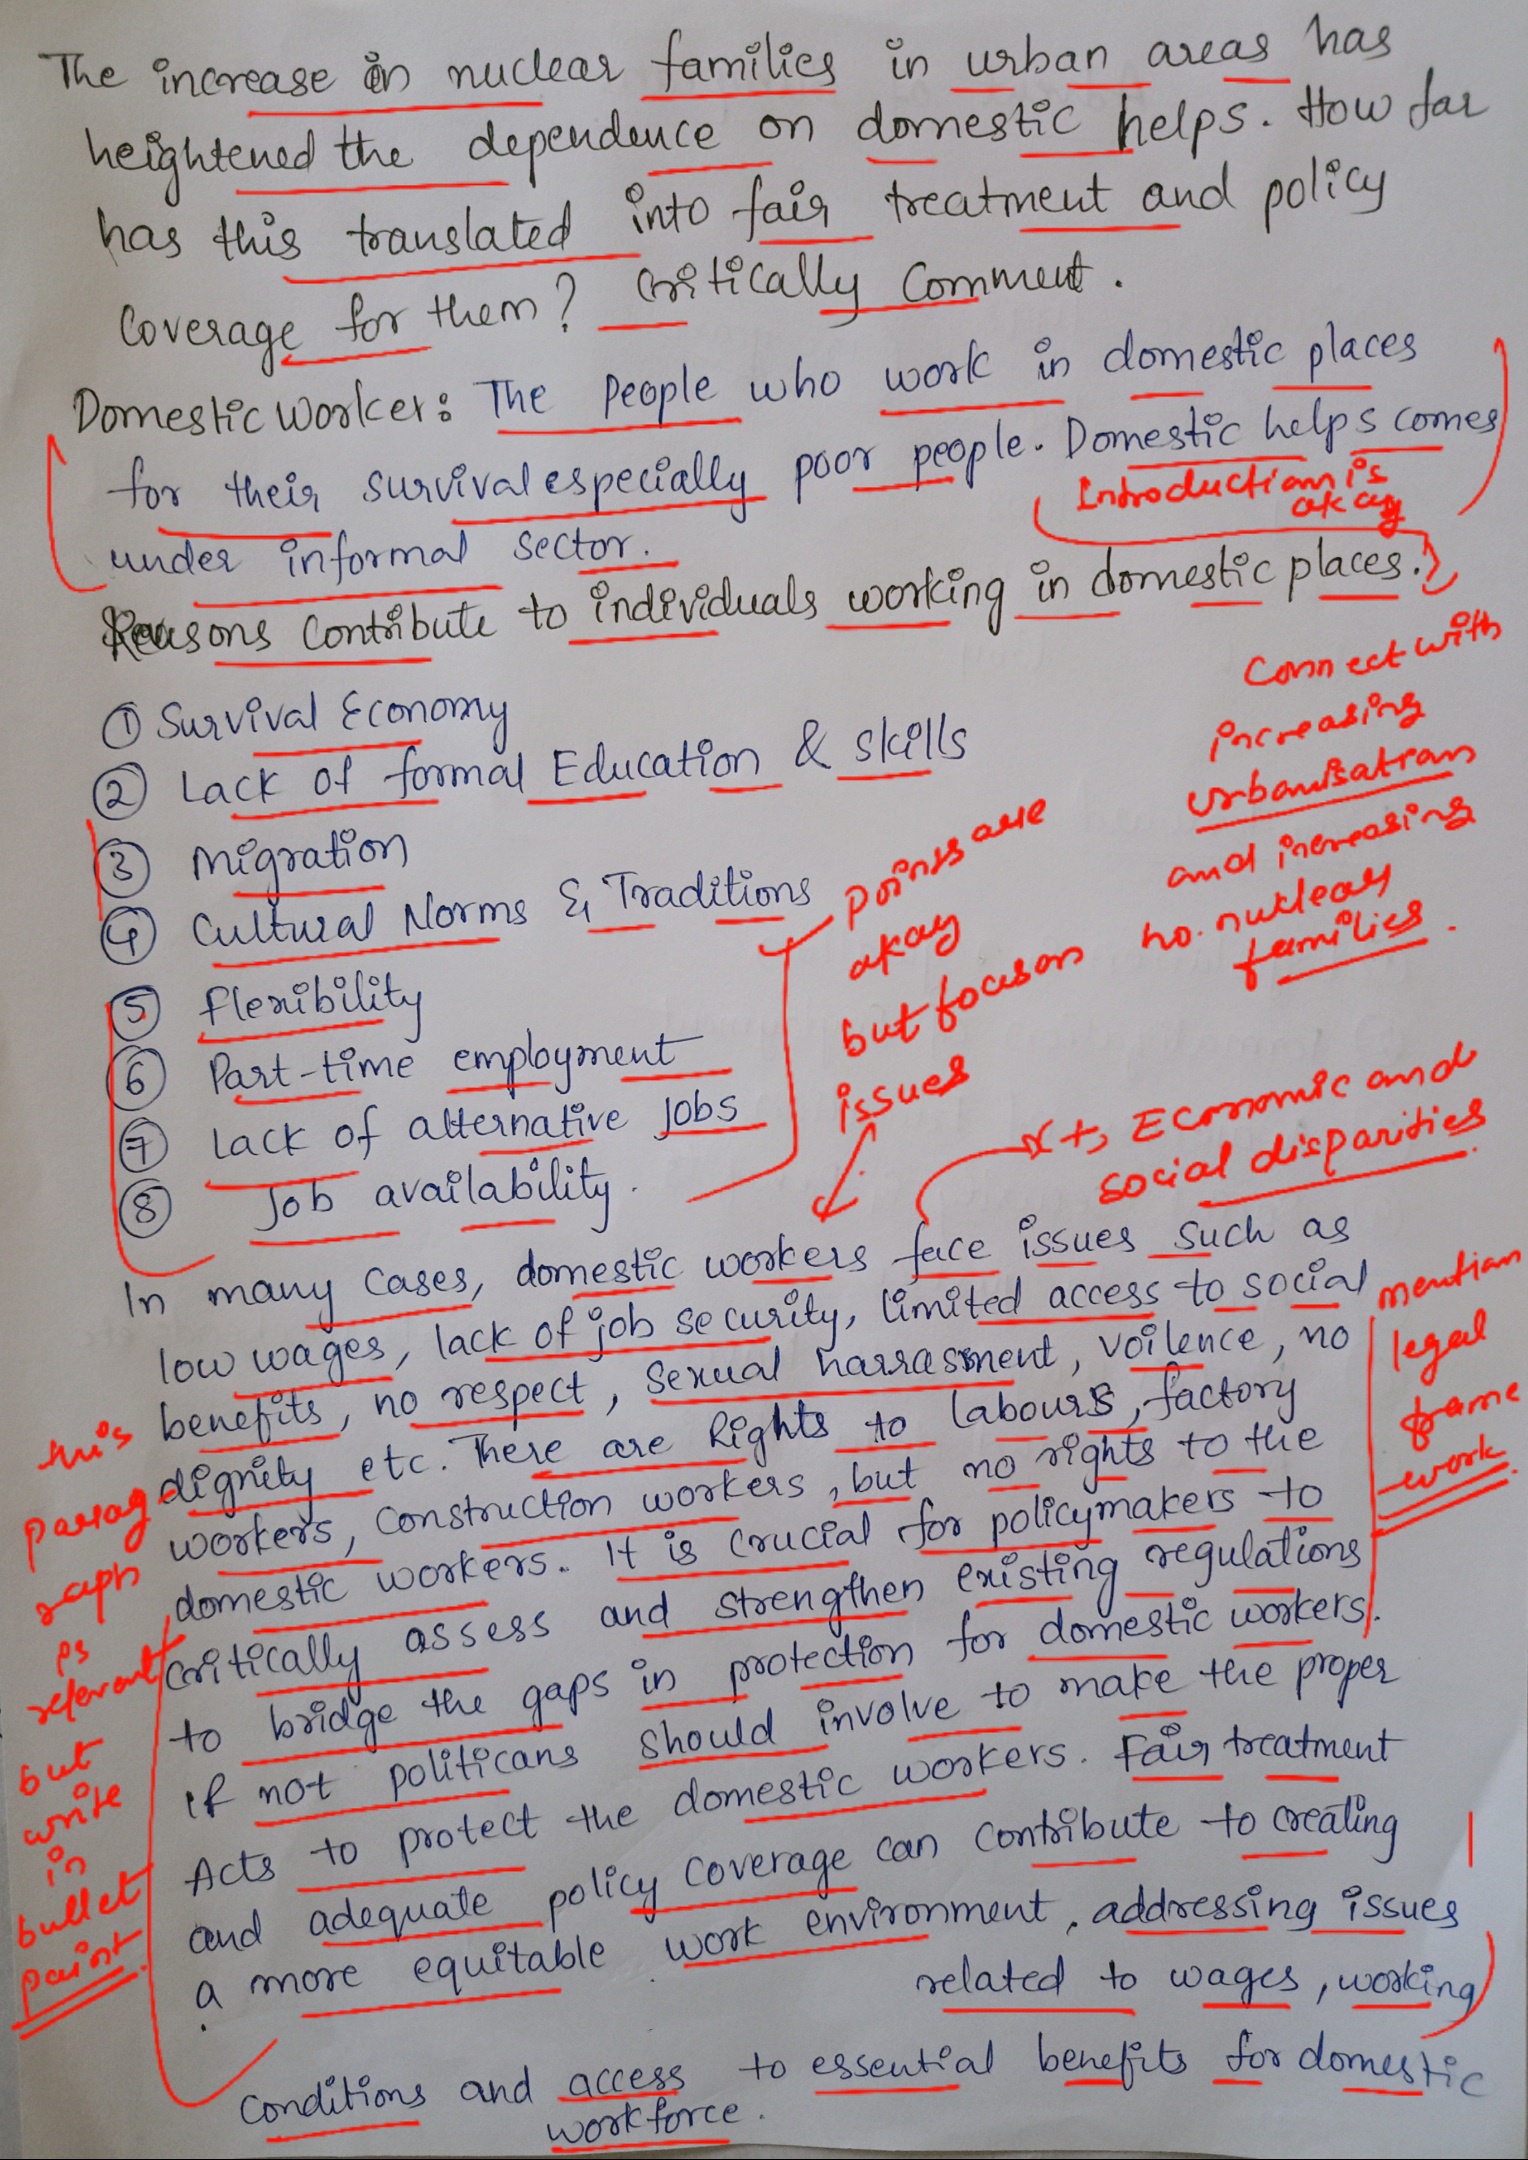 The increase in nuclear families in urban areas has
heightened the dependence on domestic helps. How far
has this translated into fair treatment and policy
Coverage for them? Critically Comment.
Domestic Worker: The People who work in domestic places
for their survival especially poor people. Domestic helps comes
under informal sector.
Introduction is
okay
Reasons Contribute to individuals working in domestic places.
Connect with
increasing
urbanisation
and increasing
no. nuclear
families.
① Survival Economy
② Lack of formal Education & skills
③ Migration
④ Cultural Norms & Traditions
⑤ Flexibility
⑥ Part-time employment
⑦ Lack of alternative Jobs
⑧ Job availability.
points are
okay
but focus on
issues
Economic and
social disparities
In many cases, domestic workers face issues such as
low wages, lack of job security, limited access to social
benefits, no respect, sexual harrasment, voilence, no
dignity etc. There are Rights to labours, factory
workers, construction workers, but no rights to the
domestic workers. It is crucial for policymakers to
critically assess and strengthen existing regulations
to bridge the gaps in protection for domestic workers.
If not politicans should involve to make the proper
Acts to protect the domestic workers. Fair treatment
and adequate policy coverage can contribute to creating
a more equitable work environment, addressing issues
related to wages, working
conditions and access to essential benefits for domestic
workforce.
mention
legal
frame
work
this
parag
raph
is
relevant
but
write
in
bullet
point